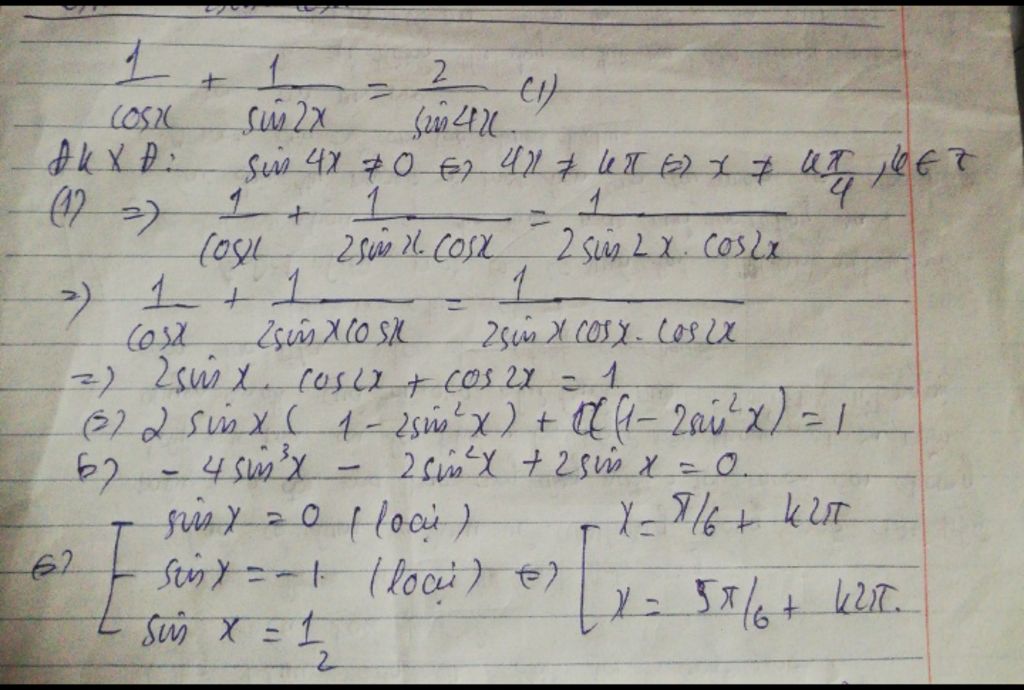 1/cosx + 1/sin2x = 2/sin4x. (1)
ĐKXĐ: sin4x ≠ 0 ⇔ 4x ≠ kπ ⇔ x ≠ kπ/4, k∈Z
(1) => 1/cosx + 1/2sinx.cosx = 1/2sin2x.cos2x
=> 1/cosx + 1/2sinxcosx = 1/2sinxcosx.cos2x
=> 2sinx.cos2x + cos2x = 1
⇔ 2sinx(1-2sin²x) + (1-2sin²x) = 1
⇔ -4sin³x - 2sin²x + 2sinx = 0.
⇔ [ sinx = 0 (loại)
sinx = -1. (loại) ⇔
sin x = 1/2
[ x = π/6 + k2π
x = 5π/6 + k2π.